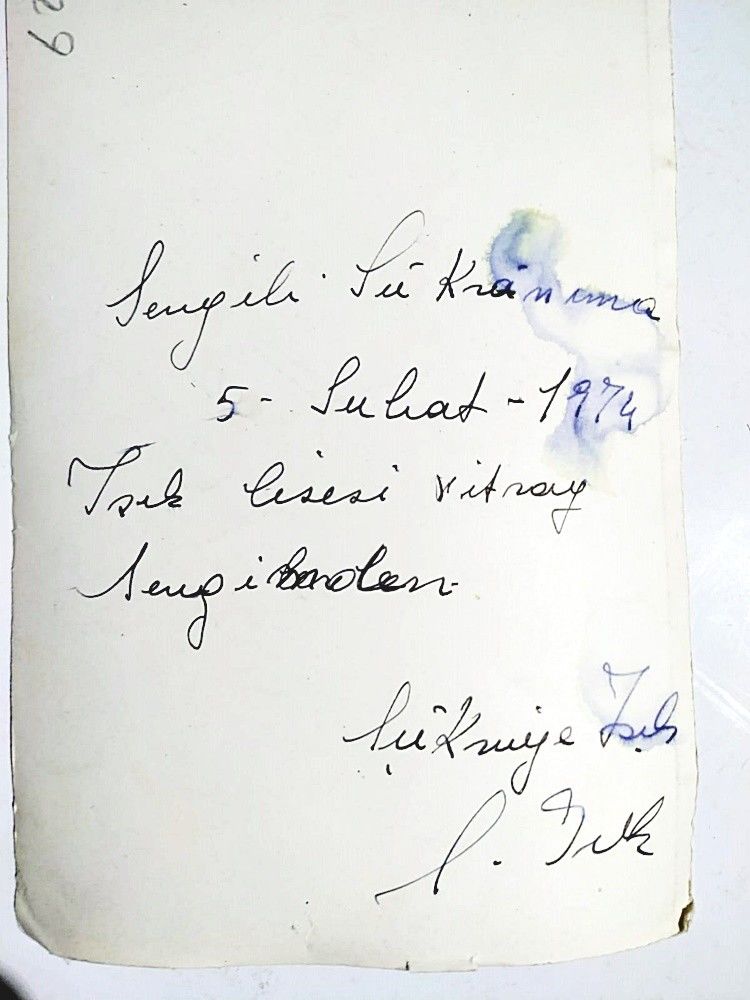 62
Sevgili Şükranıma
5 - Şubat - 1974
Işık Lisesi vitray
Sergisinden
Şükriye Işık
Ş. Işık